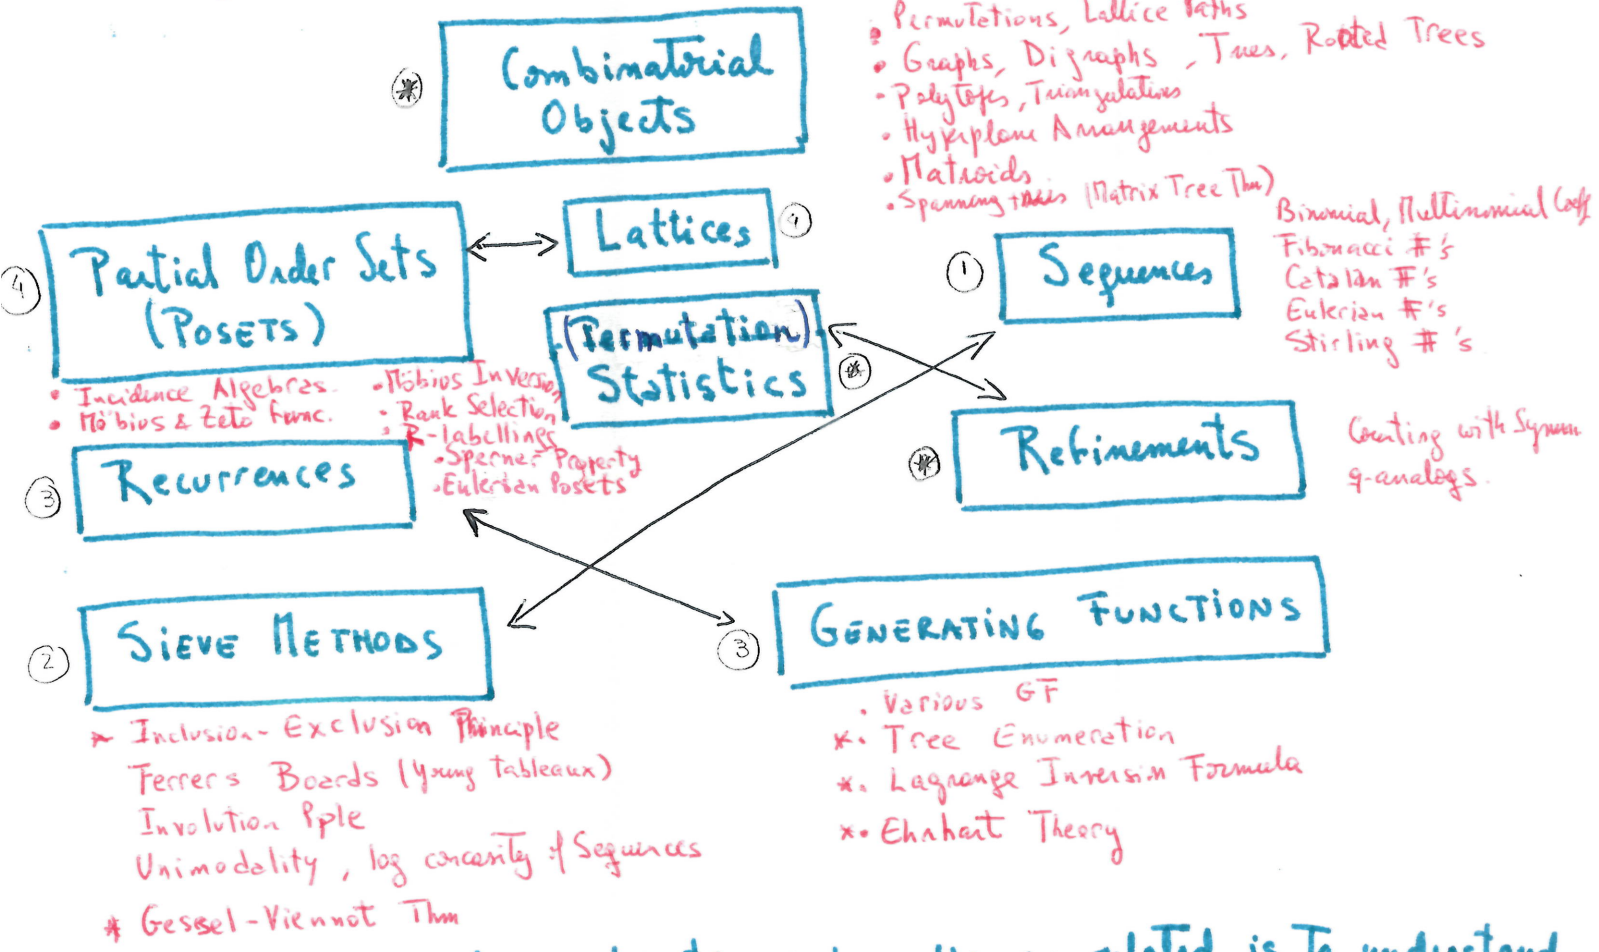 Permutations, Lattice Paths
• Graphs, Digraphs, Trees, Rooted Trees
• Polytopes, Triangulations
• Hyperplane Arrangements
• Matroids
• Spanning trees (Matrix Tree Thm)
* Combinatorial
Objects
4 Partial Order Sets
(POSETS)
Lattices 4
(Permutation)
Statistics *
1 Sequences
Binomial, Multinomial Coeff
Fibonacci #'s
Catalan #'s
Eulerian #'s
Stirling #'s
• Incidence Algebras.
• Möbius & Zeta Func.
• Möbius Inversion
• Rank Selection
• R-labellings
• Sperner Property
• Eulerian Posets
* Refinements
Counting with Symm
q-analogs.
3 Recurrences
2 SIEVE METHODS
3 GENERATING FUNCTIONS
* Inclusion-Exclusion Principle
Ferrers Boards (Young tableaux)
Involution Pple
Unimodality, log concavity of Sequences
* Gessel-Viennot Thm
. Various GF
*. Tree Enumeration
*. Lagrange Inversion Formula
*. Ehrhart Theory
is To understand